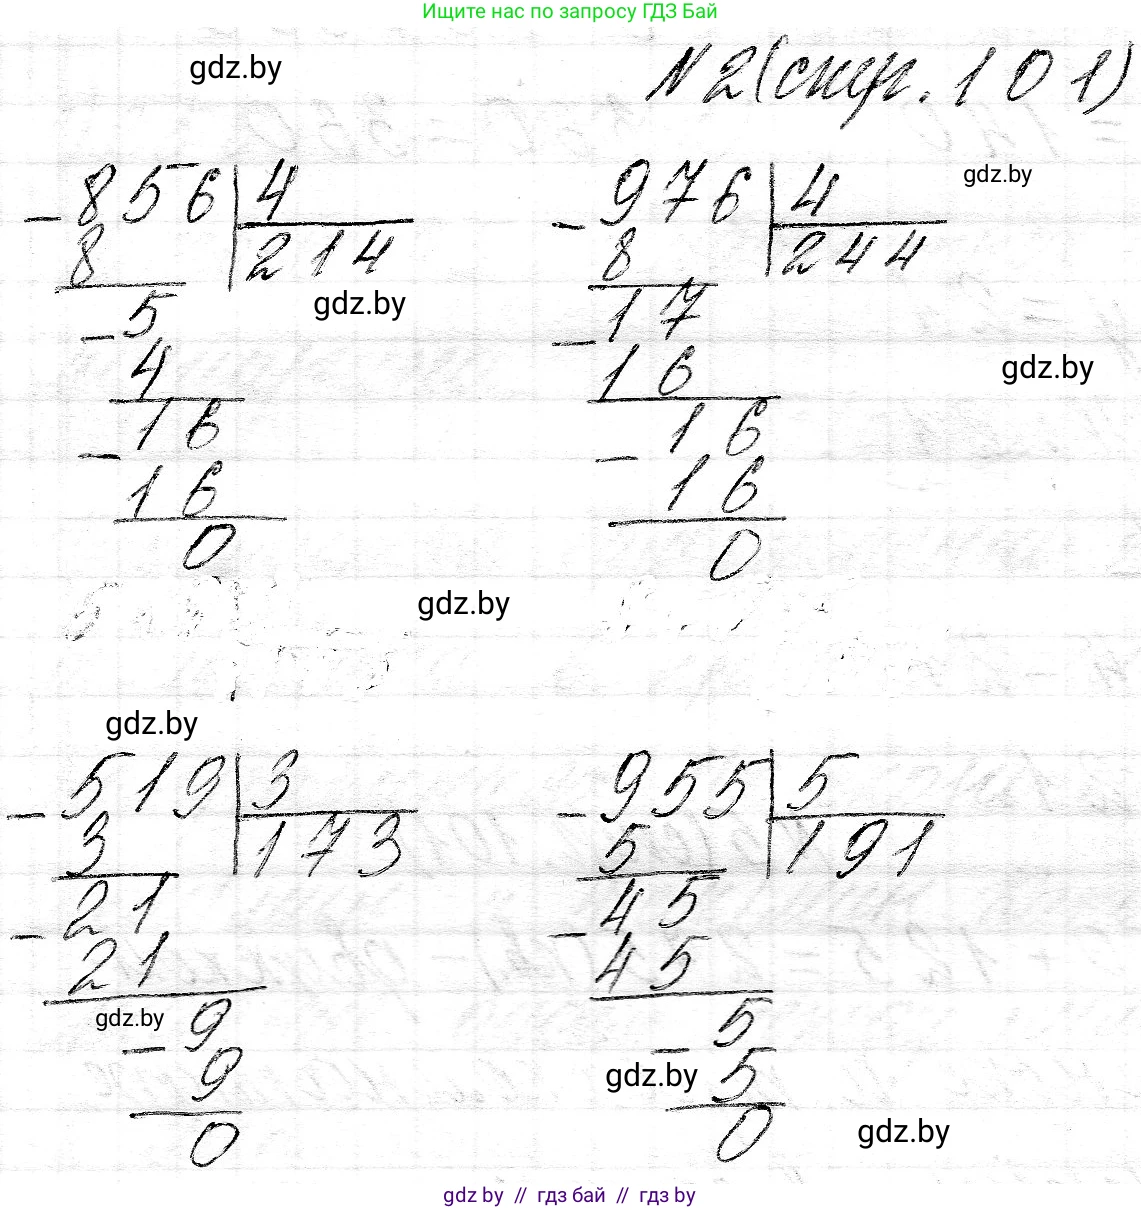 Ищите нас по запросу ГДЗ Бай
gdz.by
№ 2 (стр. 101)
gdz.by
- 856 | 4
8 | 214
gdz.by
- 5
4
- 16
16
0
- 976 | 4
8 | 244
- 17
16
gdz.by
- 16
16
0
gdz.by
gdz.by
- 519 | 3
3 | 173
- 21
21
gdz.by
- 9
9
0
- 955 | 5
5 | 191
- 45
45
- 5
gdz.by
5
0
gdz.by
gdz by // гдз бай // гдз by